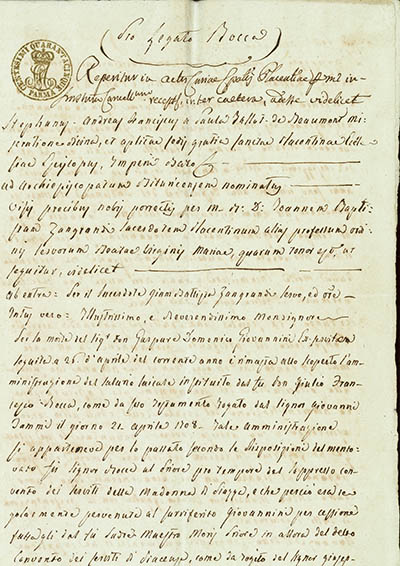 Pio Legato Rocca
CENTESIMI QUARANTACINQUE
PARMA
Reperitur in actis Curiae Epalis Placentiae per me in-
frascriptum Cancellarium receptis, inter caetera, adesse videlicet
Stephanus Andreas Franciscus a Paula Fallot de Beaumont Mi-
seratione Divina, et aplicae sedis gratia sanctae Placentinae Eccle-
siae Episcopus, Imperii Baro
ad Archiepiscopatum Bituricensem nominatus
Visis precibus nobis porrectis per M. R. D. Joannem Bapti-
stam Zangrandi sacerdotem Placentinum alias professum ordi-
nis servorum Beatae Virginis Mariae, quarum tenor est, ut
sequitur, videlicet
ab extra: Per il sacerdote Gian Battista Zangrandi servo, ed ore
Intus vero: Illustrissimo, e Reverendissimo Monsignore
Per la morte del sigr Don Gaspare Domenico Giovannini
seguita a 26 d'aprile del corrente anno è rimasta allo scoperto l'am-
ministrazione del salario laicale instituito dal fu Don Giulio Fran-
cesco Rocca, come da suo testamento rogato dal signor Giovanni
il giorno 21 aprile 1708. Tale amministrazione
si apparteneva per lo passato secondo le disposizioni del mento-
vato fu signor Rocca al Priore pro tempore del soppresso con-
vento dei serviti della Madonna di Piazza, e che perciò era re-
golarmente pervenuta al surriferito Giovannini per cessione
fattagli dal fu Padre Maestro Priore in allora del detto
Convento dei serviti di Piacenza, come da rogito del signor Giusep-